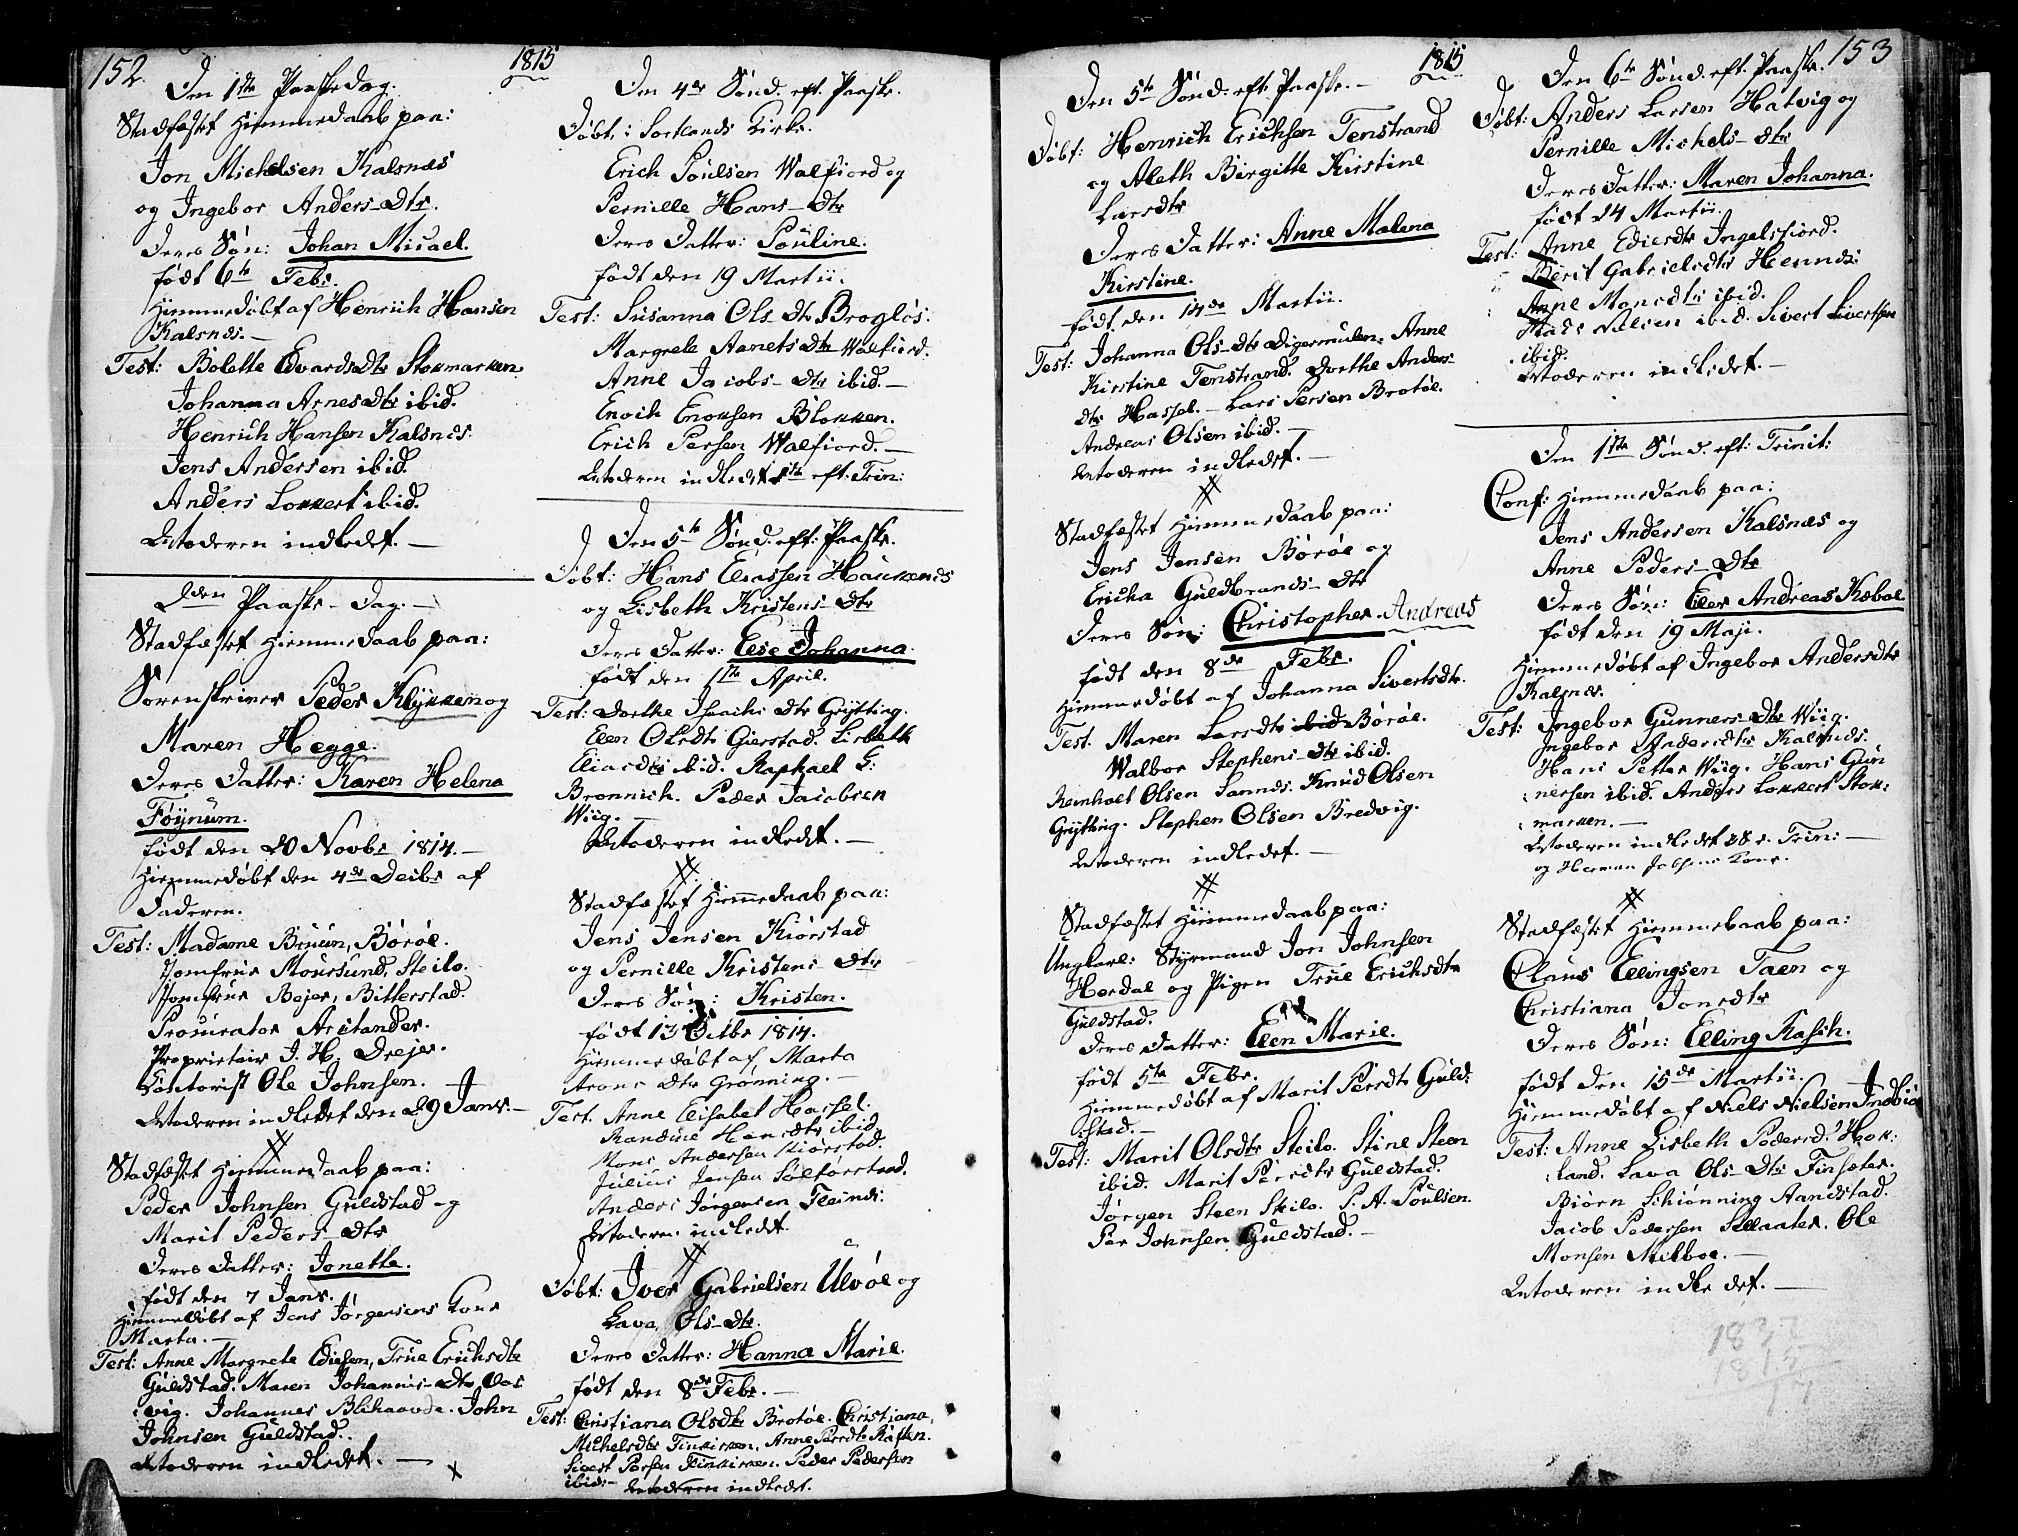 152.
1815
Den 1ste Paaskedag.
Stadfæstet Hiemmedaab paa:
Jon Michelsen Kalsnæs
og Ingebor Anders-Dtr.
Deres Søn: Johan Micael.
født 6te Febr.
Hiemmedøbt af Henrich Hansen
Kalsnæs.
Test: Bolette Edvardsdtr Stokmarken.
Johanna Arnesdtr ibid.
Henrich Hansen Kalsnæs.
Jens Andersen ibid.
Anders Lokkert ibid.
Moderen indledet.
2den Paaske-Dag.
Stadfæstet Hiemmedaab paa:
Sorenskriver Peder Klykken og
Maren Hegge.
Deres Datter: Karen Helena
Føynum.
født den 20 Novbr 1814.
Hiemmedøbt den 4de Decbr af
Faderen.
Test: Madame Bruun, Børøe.
Jomfrue Moursund, Steilo.
Jomfrue Bejer, Bitterstad.
Procurator Arctander.
Proprietair J. H. Drejer.
Contorist Ole Johnsen.
Moderen indledet den 29 Janr.
Stadfæstet Hiemmedaab paa:
Peder Johnsen Guldstad og
Marit Peders-Dtr
Deres Datter: Jonette.
født den 7 Janr.
Hiemmedøbt af Jens Jørgensens Kone
Marta.
Test: Anne Margrete Ediesen, True Erichsdtr
Guldstad. Maren Johannis-Dtr
vig. Johannes Blikaavde. John
Johnsen Guldstad.
Moderen indledet.
Den 4de Sønd. eft. Paaske.
Døbt, i Sortlands Kirke.
Erich Poulsen Walfiord og
Pernille Hans-Dtr
Deres Datter: Pouline.
født den 19 Martii.
Test: Susanna Ols-Dtr Brogløs:
Margrete Aanetsdtr Walfiord.
Anne Jacobs-Dtr ibid.
Enoch Enoksen Blokken.
Erich Persen Walfiord.
Moderen indledet 1ste eft. Trin:
Den 5te Sønd. eft: Paaske.
Døbt: Hans Eliassen Haukenæs
og Lisbeth Kristens-Dtr
Deres Datter: Else Johanna.
født den 1ste April.
Test: Dorthe Isachs Dtr Grytting.
Elen Olsdtr Gierstad. Lisbeth
Eliasdtr ibid. Raphael E:
Bronnich. Peder Jacobsen
Wiig.
Moderen indledet.
Stadfæstet Hiemmedaab paa:
Jens Jensen Kiørstad
og Pernille Kristens Dtr
Deres Søn: Kristen.
født 13 Decbr 1814.
Hiemmedøbt af Marta
Arons Dtr Grønning.
Test. Anne Elisabet Hassel.
Randine Hansdtr ibid.
Mons Andersen Kiørstad.
Julius Jensen
Anders Jørgensen Fleines:
Moderen indledet.
Døbt: Iver Gabrielsen Ulvøe og
Lava Ols-Dtr.
Deres Datter: Hanna Marie.
født den 8de Febr.
Test: Christiana Olsdtr Brotøe. Christiana
Michelsdtr Finkirken. Anne Persdtr Raften.
Sivert Persen Finkirken. Peder Pedersen
ibid: Moderen indledet.
1815
153
Den 5te Sønd. eft. Paaske.
Døbt: Henrich Erichsen Tenstrand
og Aleth Birgitte Kirstine
Larsdtr
Deres Datter: Anne Malena
Kirstine.
født den 14de Martii.
Test: Johanna Ols-Dtr Digermulen. Anne
Kirstine Tenstrand. Dorthe Anders
dtr Hassel. Lars Persen Brotøe.
Andreas Olsen ibid.
Moderen indledet.
Stadfæstet Hiemmedaab paa:
Jens Jensen Børøe og
Ericha Guldbrands-Dtr
Deres Søn: Christopher Andreas
født den 8de Febr.
Hiemmedøbt af Johanna Sivertsdtr.
Test. Maren Larsdtr ibid Børøe.
Walbor Stephens-Dtr ibid.
Reinholt Olsen Sannæs. Knud Olsen
Grytting. Stephen Olsen Bredvig.
Moderen indledet.
Stadfæstet Hiemmedaab paa:
Ungkarl: Styrmand Jon Johnsen
Herdal og Pigen True Erichsdtr
Guldstad.
Deres Datter: Elen Marie.
født 5te Febr.
Hiemmedøbt af Marit Persdtr Guld:
stad.
Test: Marit Olsdtr Steilo. Stine Steen
ibid. Marit Persdtr Guldstad.
Jørgen Steen Steilo. P. A. Poulsen.
Per Johnsen Guldstad.
Den 6te Sønd. eft. Paaske.
Døbt: Anders Larsen Hatvig og
Pernille Michels-Dtr
Deres Datter: Maren Johanna.
født 24 Martii.
Test: Anne Ediesdtr Ingelsfiord.
Berit Gabrielsdtr Hennes:
Anne Monsdtr ibid.
Mads Nilsen ibid. Sivert Sivertsen
ibid.
Moderen indledet.
Den 1ste Sønd. eft: Trinit:
Conf: Hiemmedaab paa:
Jens Andersen Kalsnæs og
Anne Peders-Dtr
Deres Søn: Eler Andreas Kæboe
født den 19 Maji.
Hiemmedøbt af Ingebor Andersdtr
Kalsnæs.
Test: Ingebor Gunners-Dtr Wiig.
Ingebor Andersdtr Kalsnæs.
Hans Petter Wiig. Hans Gun
nersen ibid. Anders Lokkert Stok:
marken.
Moderen indledet 28 e. Trin:
og Herman Kone.
Stadfæstet Hiemmedaab paa:
Claus Ellingsen Taen og
Christiana Jonsdtr
Deres Søn: Elling Rasch.
født den 15de Martii.
Hiemmedøbt af Niels Nielsen Indbioe
Test: Anne Lisbeth Pedersd. Hok:
land. Lava Ols-Dtr Finsæter.
Biørn Schiønning Aandstad.
Jacob Pedersen Selaater. Ole
Monsen Melboe.
Moderen indledet.
1832
1815
17